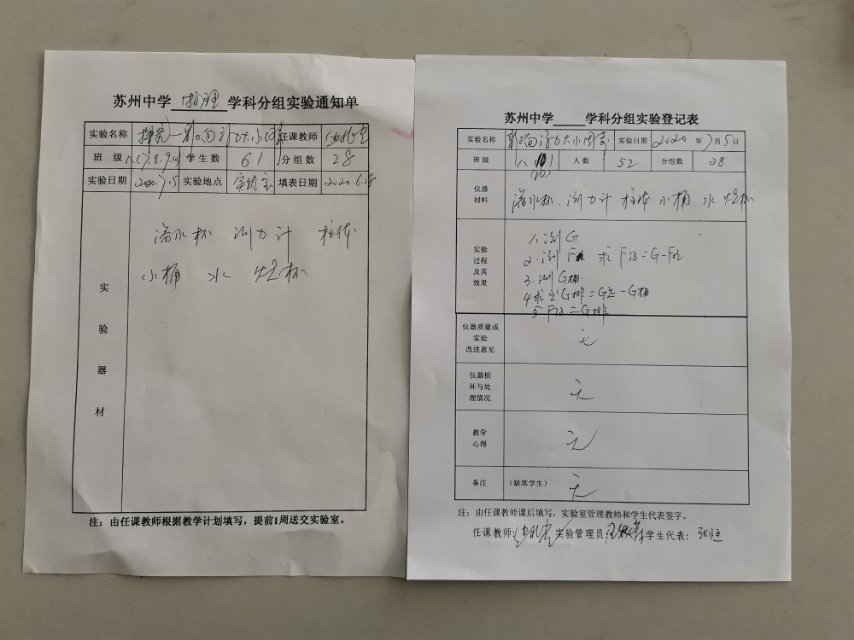 苏州中学 物理 学科分组实验通知单
实验名称 影响浮力大小因素 任课教师
班 级 学生数 61 分组数 28
实验日期 2020.7.5 实验地点 实验室 填表日期
实验器材
溢水杯 测力计 柱体
小桶 水 烧杯
注：由任课教师根据教学计划填写，提前1周送交实验室。
苏州中学 学科分组实验登记表
实验名称 影响浮力大小因素 实验日期 2020 年 7 月 5 日
班级 人数 52 分组数 28
仪器材料 溢水杯 测力计 柱体 小桶 水 烧杯
实验过程及其效果
1.测G
2.测F 求F浮=G-F
3.测G桶
4.求出G排=G总-G桶
5 F浮=G排
仪器质量或实验改进意见 无
仪器损坏与处理情况 无
教学心得 无
备注 （缺席学生） 无
注：由任课教师课后填写，实验室管理教师和学生代表签字。
任课教师： 实验管理员 学生代表：